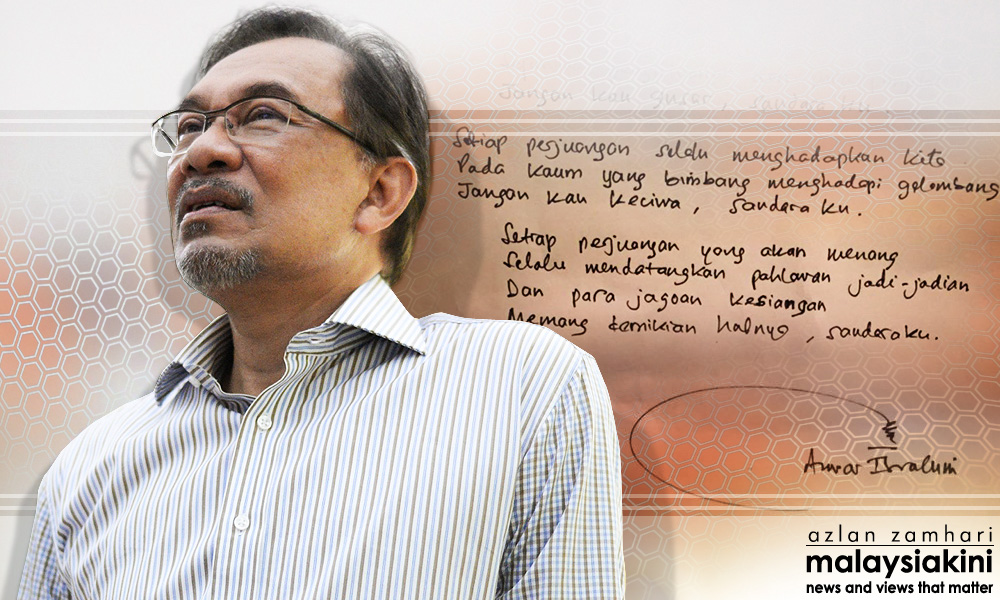 Jangan kau gusar, sandera ku
Setiap perjuangan selalu menghadapkan kita
Pada kaum yang bimbang menghadapi gelombang
Jangan kau keciwa, sandera ku.
Setiap perjuangan yang akan menang
Selalu mendatangkan pahlawan jadi-jadian
Dan para jagoan kesiangan
Memang demikian halnya, sanderaku.
Anwar Ibrahim
azlan zamhari
malaysiakini
news and views that matter